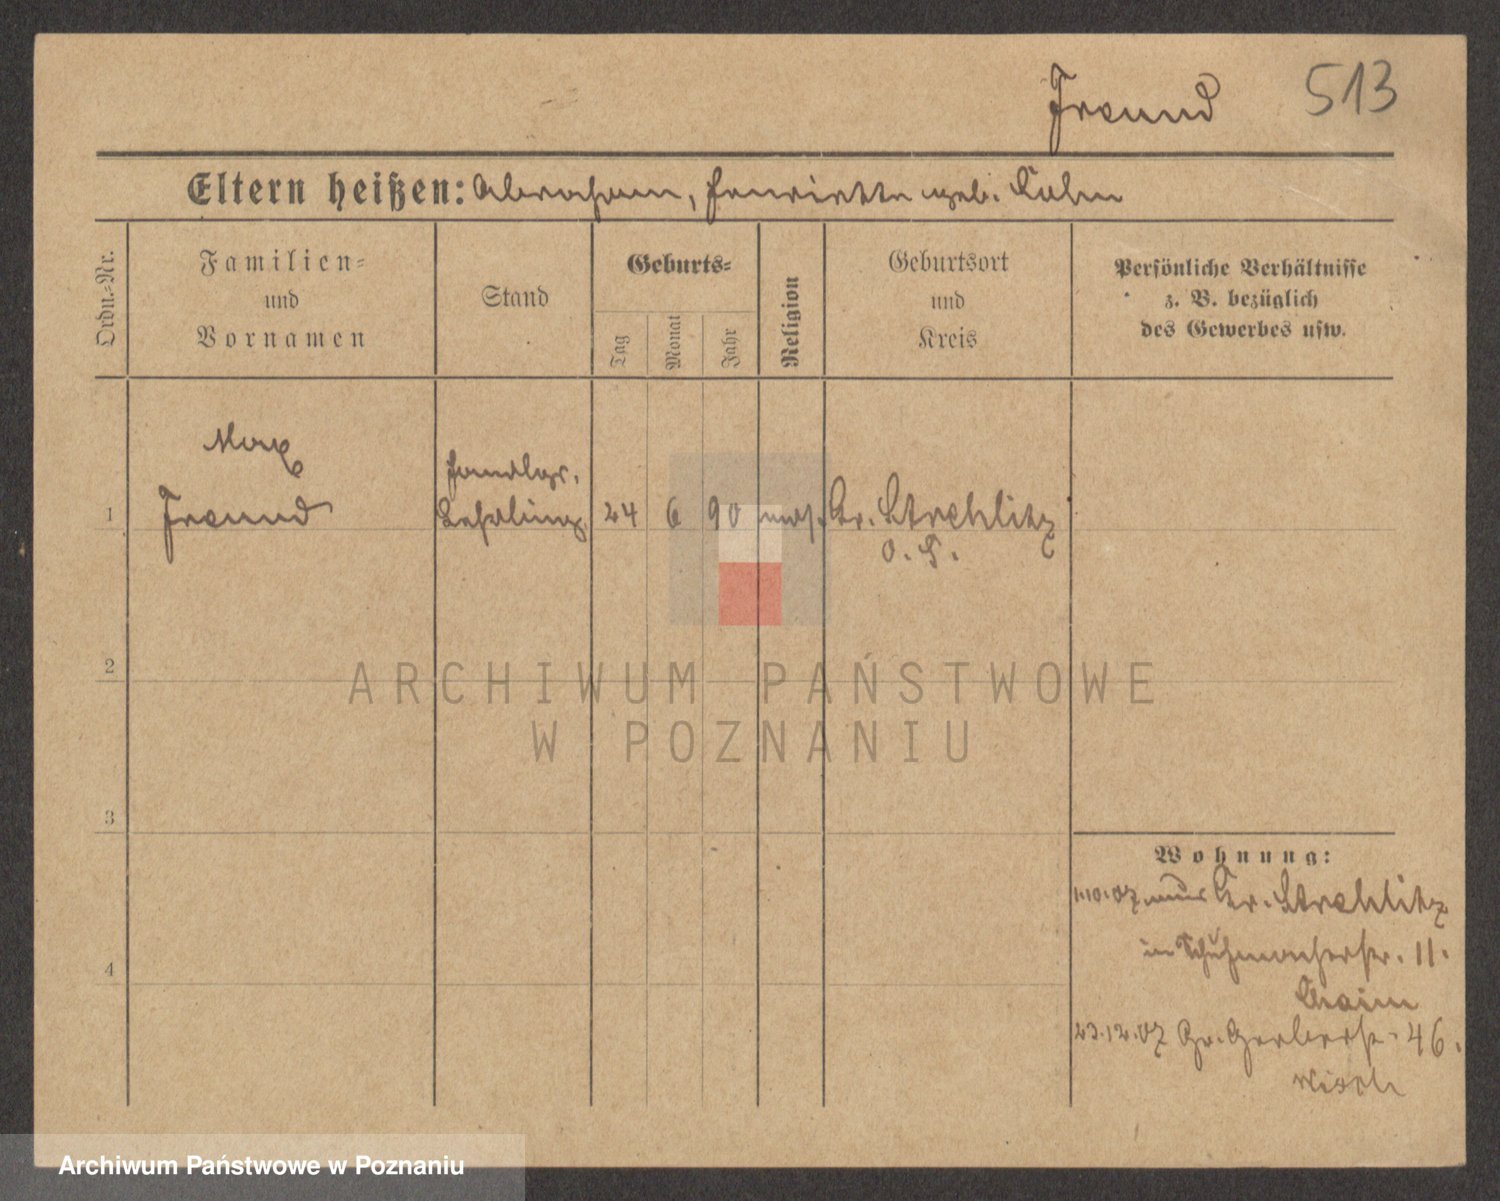 Freund 513
Eltern heißen: Abraham, Henriette geb. Cohn
Ordn.-Nr.
Familien-
und
Vornamen
Stand
Geburts-
Tag
Monat
Jahr
Religion
Geburtsort
und
Kreis
Persönliche Verhältnisse
z. B. bezüglich
des Gewerbes usw.
Max
Handlgs.
1 Freund Lehrling 24 6 90 mos. Gr. Strehlitz
O. S.
2
3
4
Wohnung:
1.10.07 aus Gr. Strehlitz
in Schuhmacherstr. 11.
Chaim
23.12.07 Gr. Gerberstr. 46.
ARCHIWUM PAŃSTWOWE
W POZNANIU
Archiwum Państwowe w Poznaniu